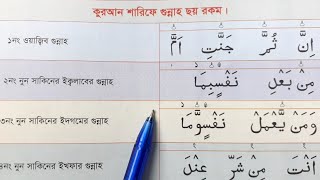 কুরআন শারিফে গুন্নাহ ছয় রকম।
১নং ওয়াজিব গুন্নাহ
اِنَّ ثُمَّ جَنّٰتِ اَمَّ
২নং নুন সাকিনের ইক্বলাবের গুন্নাহ
مِنْۢ بَعْدِ نَفْسٍۢبِمَا
৩নং নুন সাকিনের ইদগামের গুন্নাহ
وَمَنْ يَّعْمَلْ نَفْسٍوَّمَا
৪নং নুন সাকিনের ইখফার গুন্নাহ
اَنْتَ مِنْ شَرِّ عِنْدَ